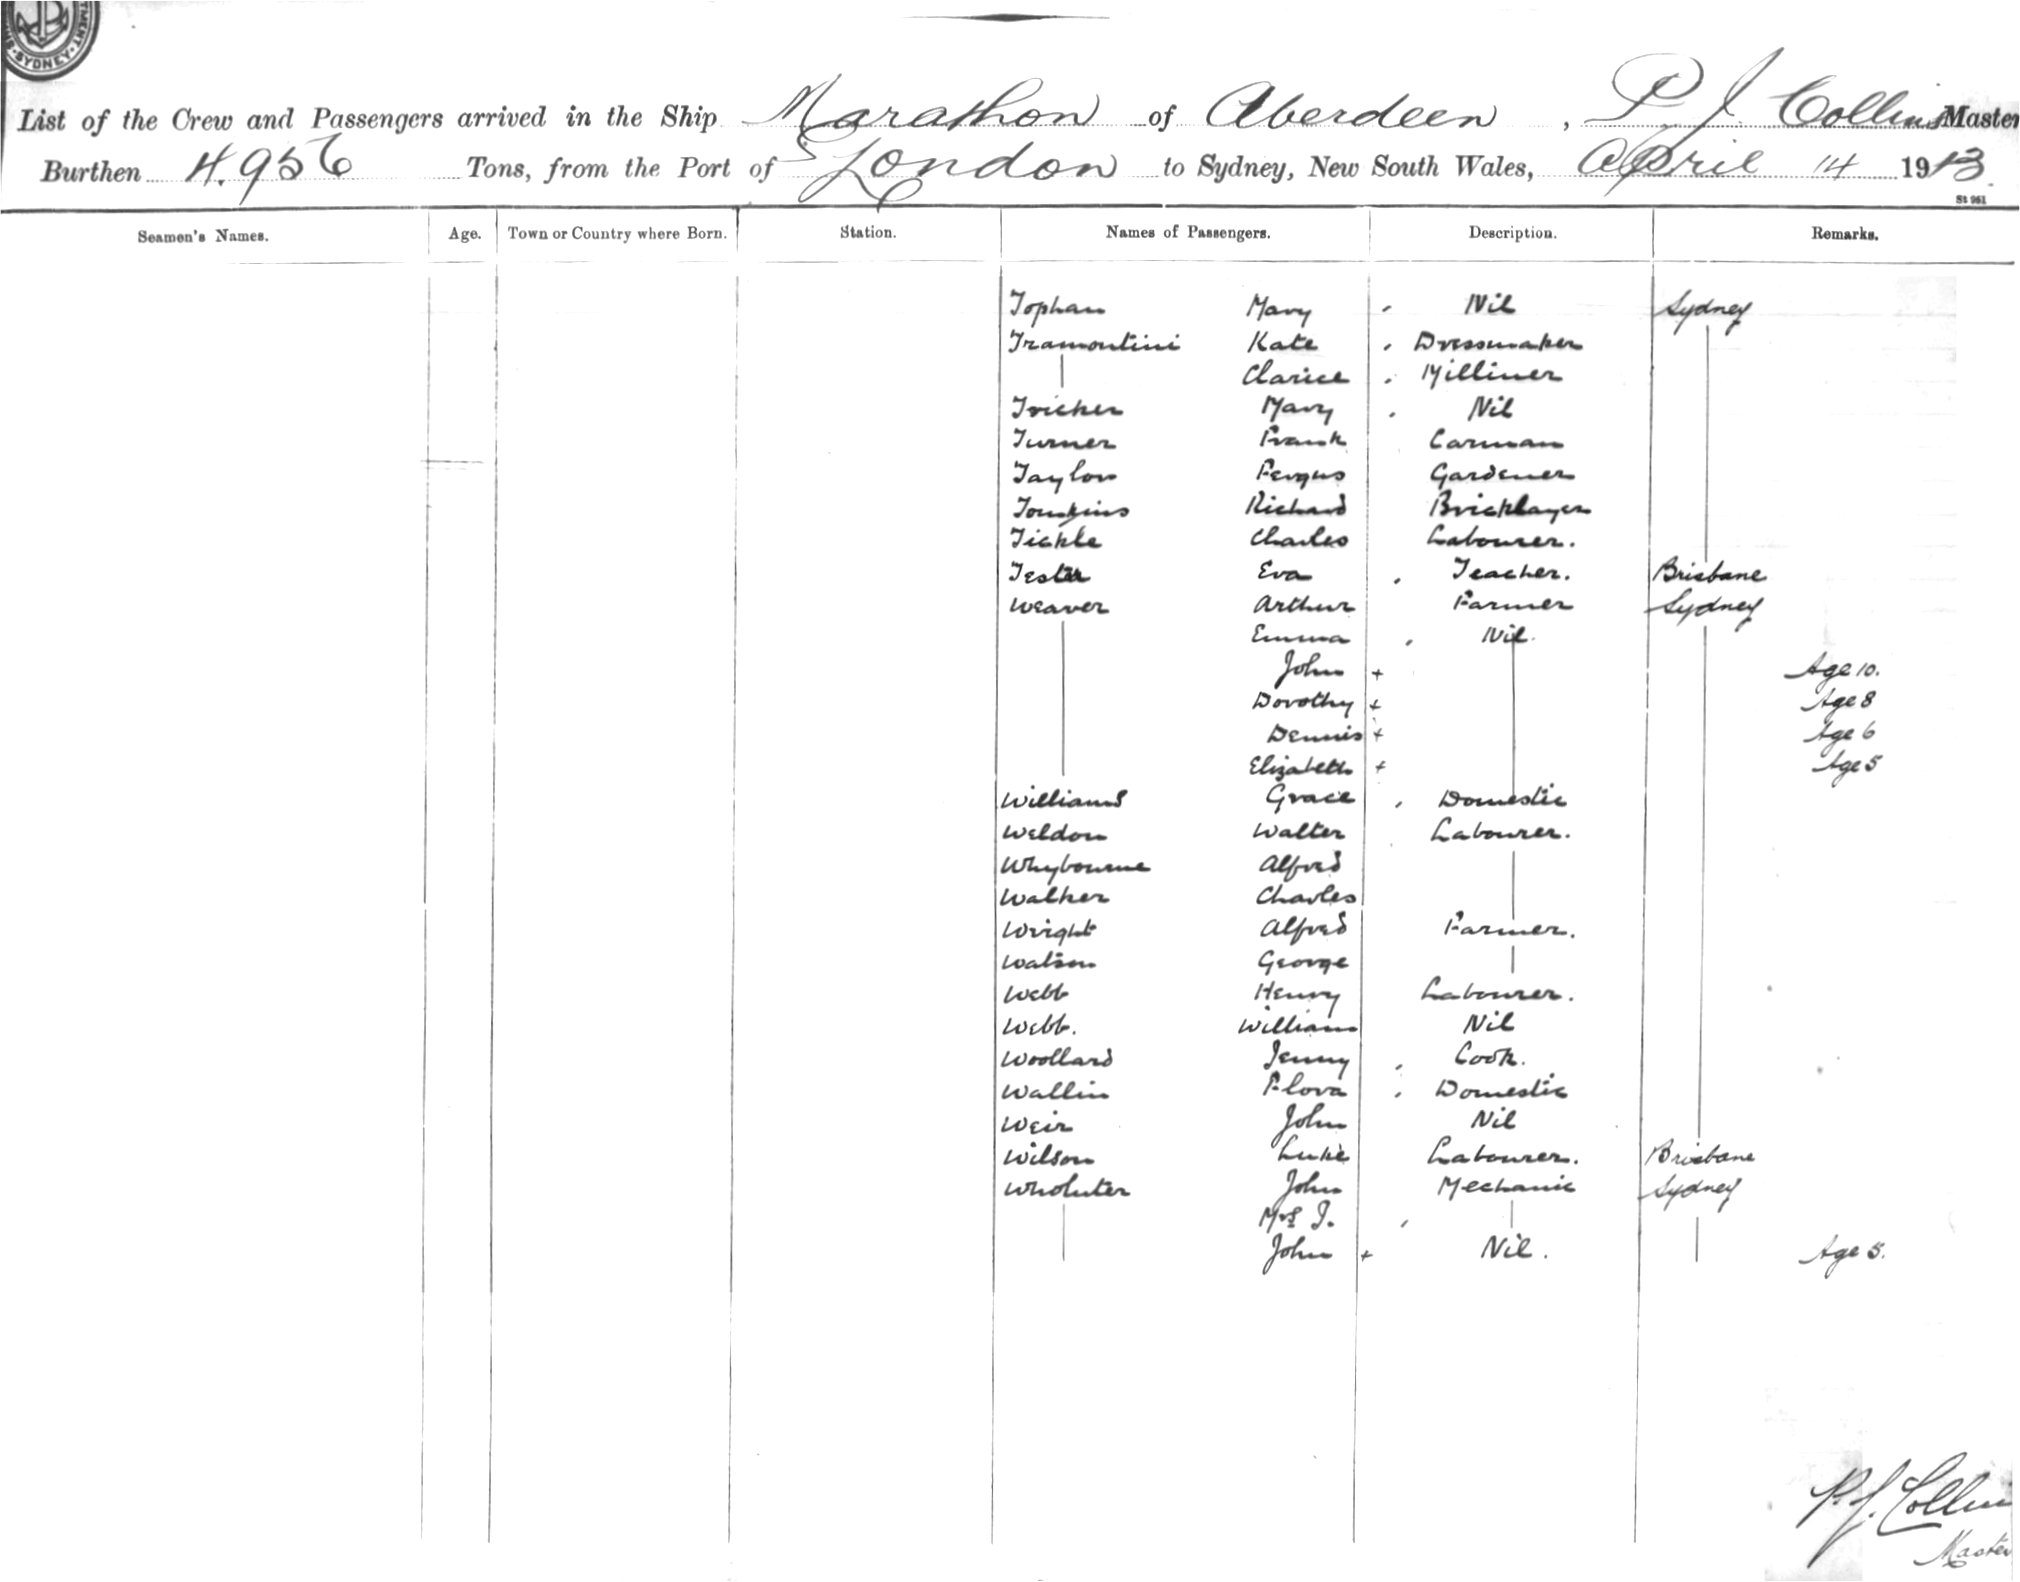 SYDNEY
List of the Crew and Passengers arrived in the Ship Marathon of Aberdeen, P. J. Collins Master
Burthen 4.956 Tons, from the Port of London to Sydney, New South Wales, April 14 1913
St 961
Seamen's Names. Age. Town or Country where Born. Station. Names of Passengers. Description. Remarks.
Topham Mary Nil Sydney
Tramontini Kate Dressmaker
Clarice Milliner
Tricker Mary Nil
Turner Frank Carman
Taylor Fergus Gardener
Tompkins Richard Bricklayer
Tickle Charles Labourer.
Tester Eva Teacher. Brisbane
Weaver Arthur Farmer Sydney
Emma Nil.
John + Age 10.
Dorothy + Age 8
Dennis + Age 6
Elizabeth + Age 5
Williams Grace Domestic
Weldon Walter Labourer.
Whybourne Alfred
Walker Charles
Wright Alfred Farmer.
Watson George
Webb Henry Labourer.
Webb. William Nil
Woollard Jenny Cook.
Wallin Flora Domestic
Weir John Nil
Wilson Luke Labourer. Brisbane
John Mechanic Sydney
Mrs J.
John + Nil. Age 5.
P. J. Collins
Master